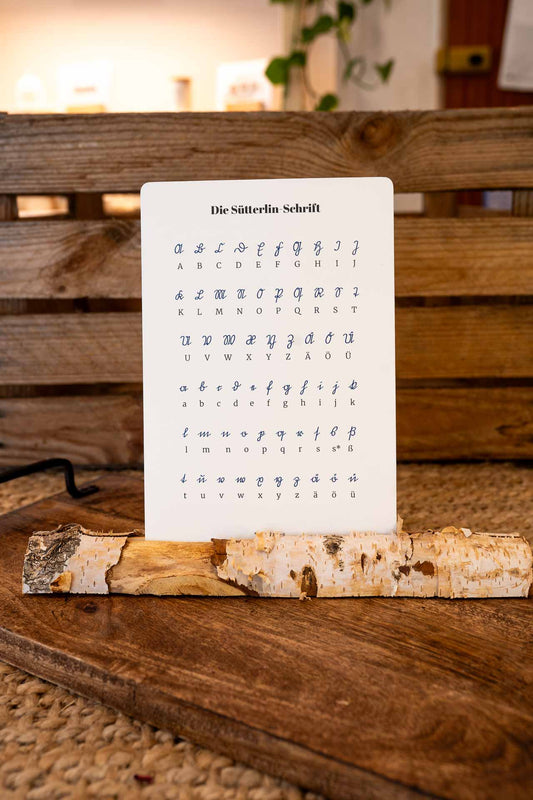 Die Sütterlin-Schrift
A B C D E F G H I J
A B C D E F G H I J
K L M N O P Q R S T
K L M N O P Q R S T
U V W X Y Z Ä Ö Ü
U V W X Y Z Ä Ö Ü
a b c d e f g h i j k
a b c d e f g h i j k
l m n o p q r s s ß
l m n o p q r s s* ß
t u v w x y z ä ö ü
t u v w x y z ä ö ü